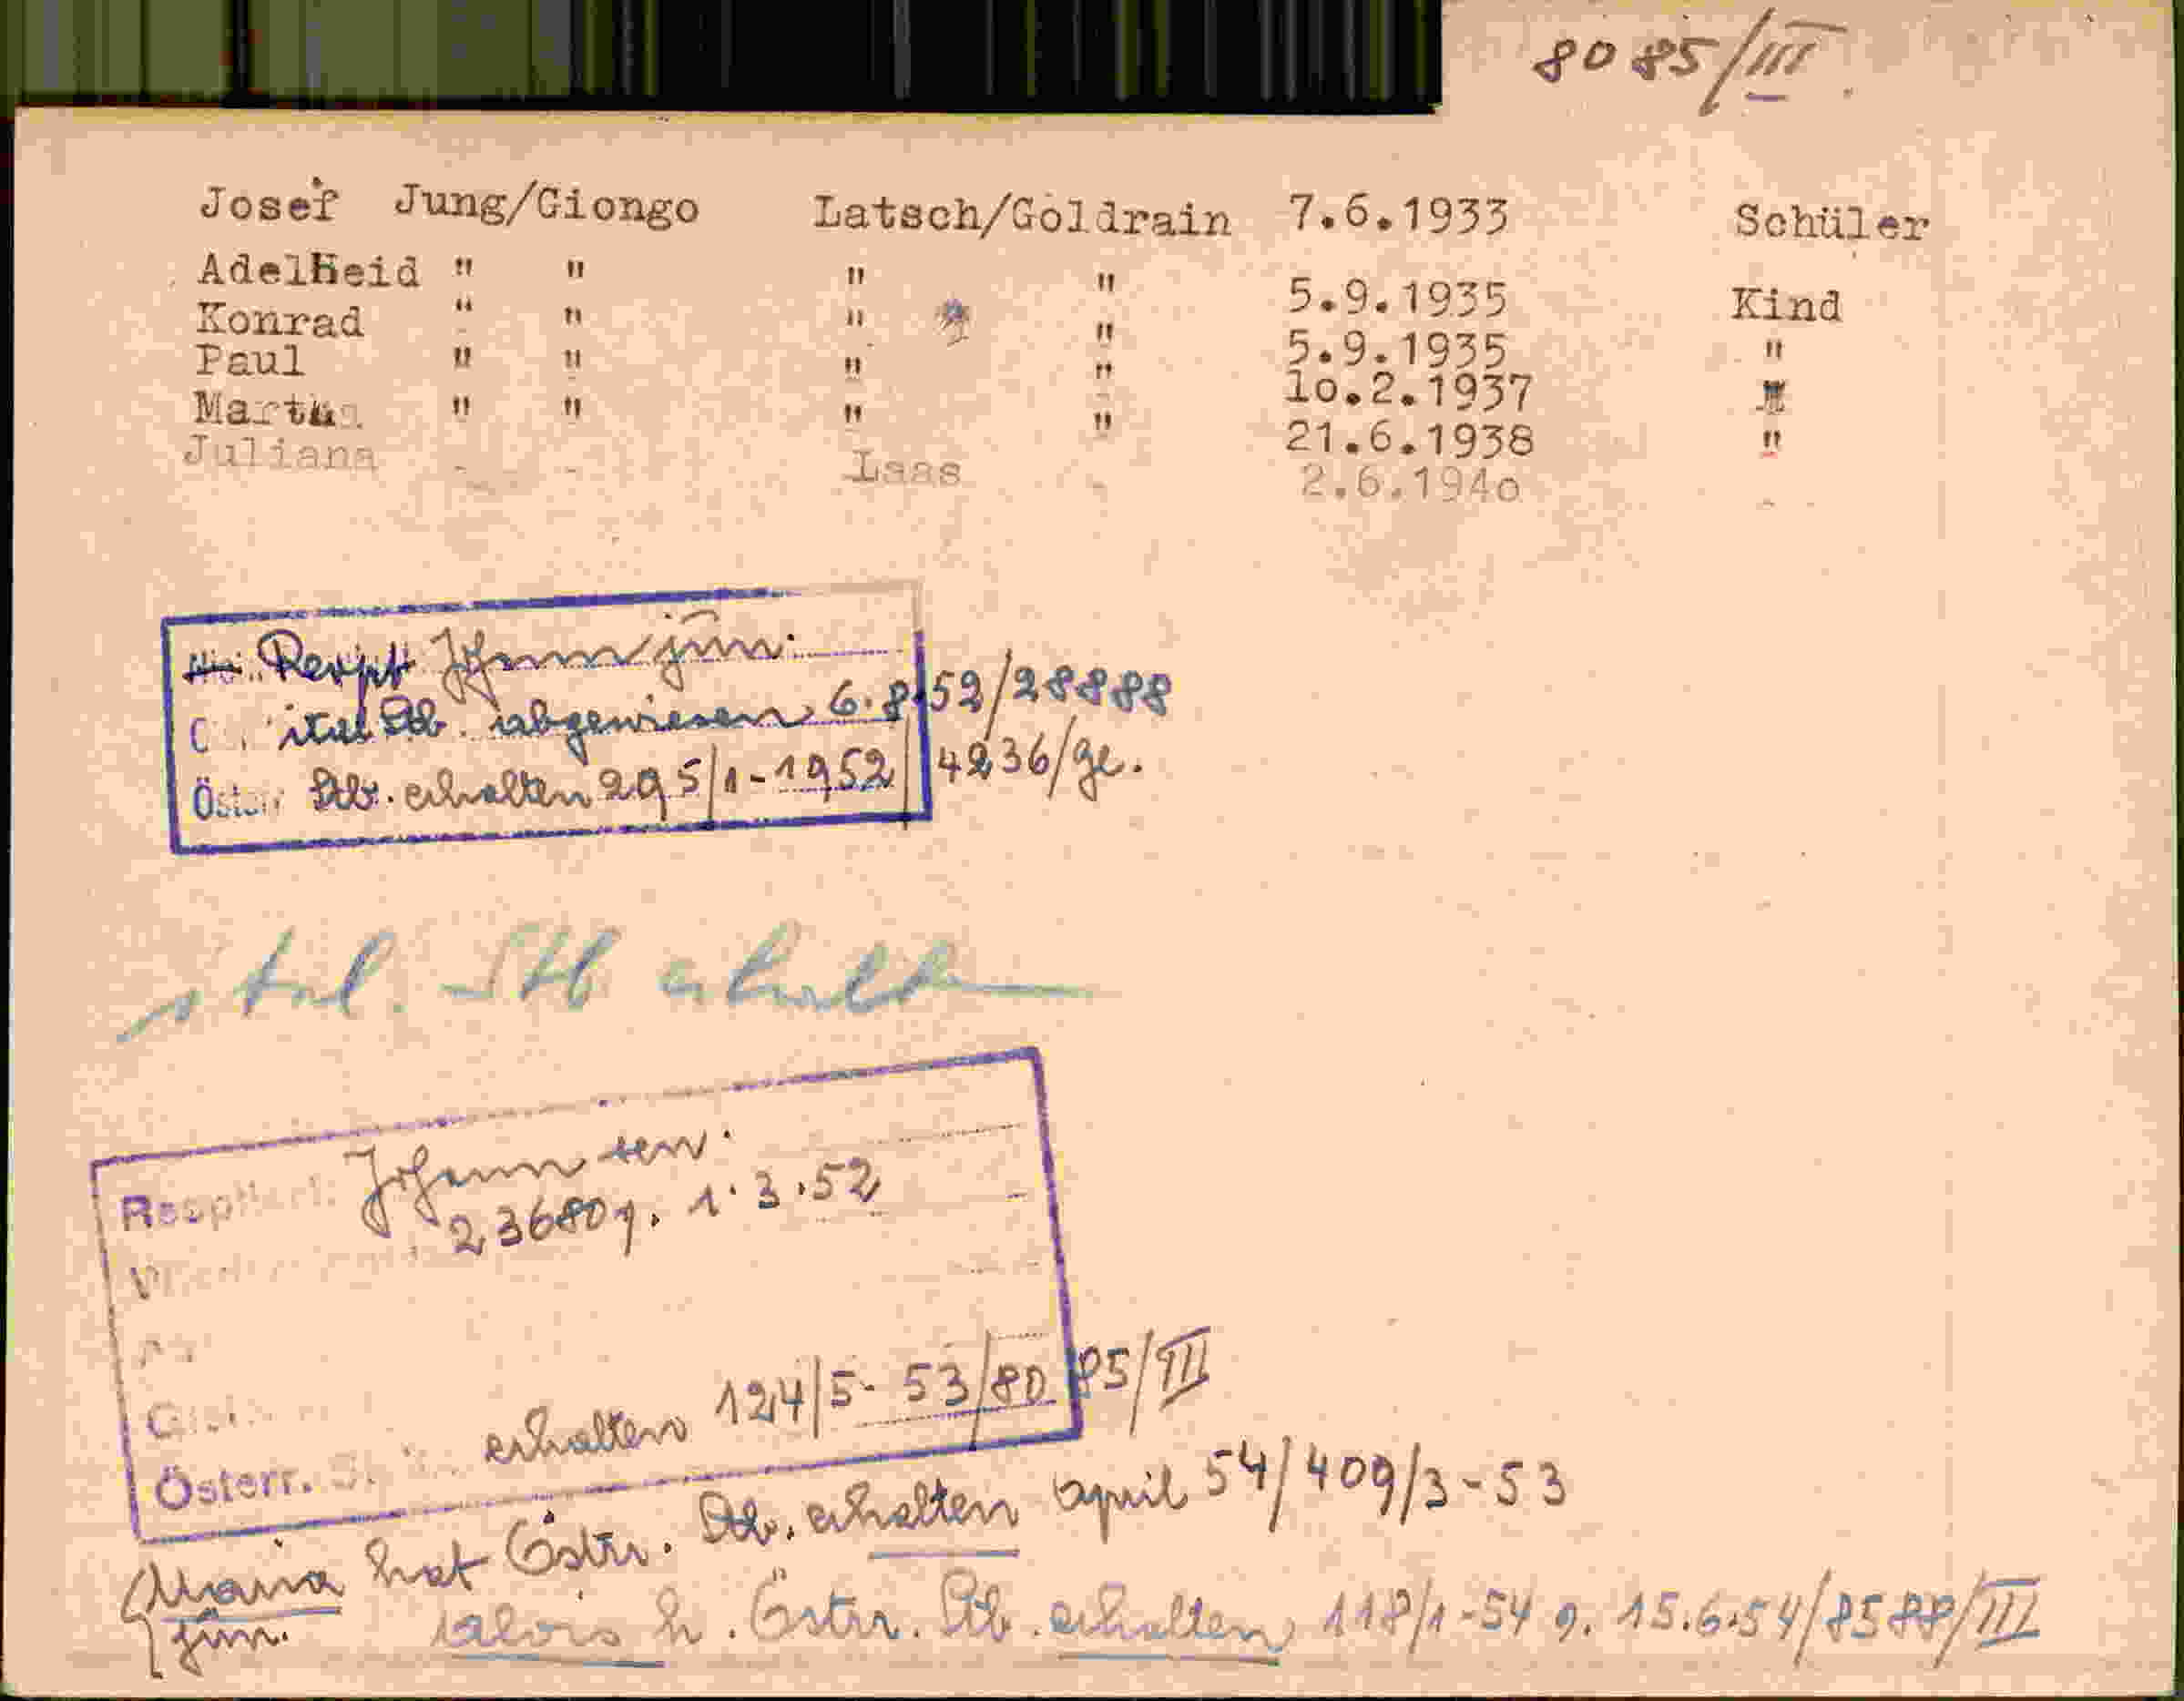 8085/III.
Josef Jung/Giongo Latsch/Goldrain 7.6.1933 Schüler
Adelheid " " " " 5.9.1935 Kind
Konrad " " " " 5.9.1935 "
Paul " " " " 10.2.1937 "
Martha " " " " 21.6.1938 "
Juliana - - Laas - 2.6.1940 -
Rexpt Johann jun.
ital. Stb. abgewiesen 6.8.52/28888
Österr Stb. erhalten 295/1-1952/4236/ge.
ital. Stb erhalten
Johann sen.
23680 g. 1.3.52
Österr. erhalten 124/5-53/8085/III
Maria hat Östr. Stb. erhalten april 54/409/3-53
jun.
Alois h. Östr. Stb. erhalten 118/1-54 g. 15.6.54/8588/III